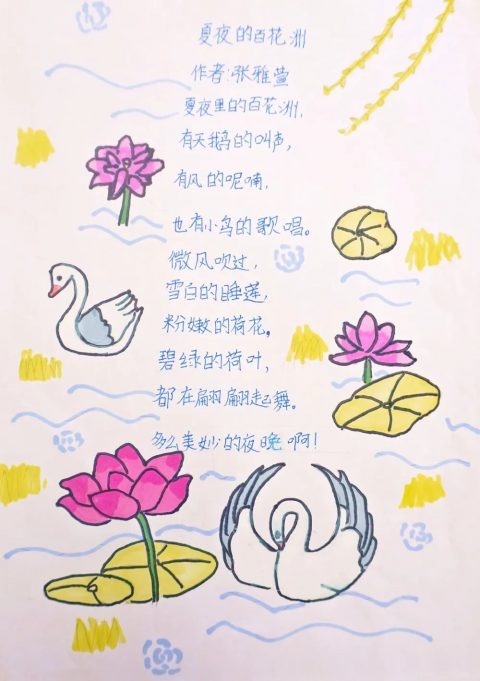 夏夜的百花洲
作者:张雅萱
夏夜里的百花洲,
有天鹅的叫声,
有风的呢喃,
也有小鸟的歌唱。
微风吹过,
雪白的睡莲,
粉嫩的荷花。
碧绿的荷叶,
都在翩翩起舞。
多么美妙的夜晚啊!